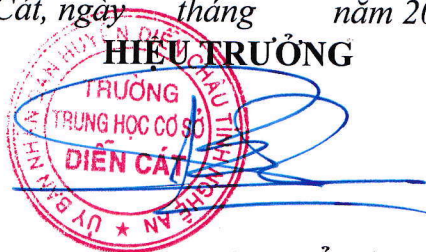 Cát, ngày tháng năm 20
HIỆU TRƯỞNG
ỦY BAN NHÂN DÂN HUYỆN DIỄN CHÂU TỈNH NGHỆ AN
TRƯỜNG
TRUNG HỌC CƠ SỞ
DIỄN CÁT